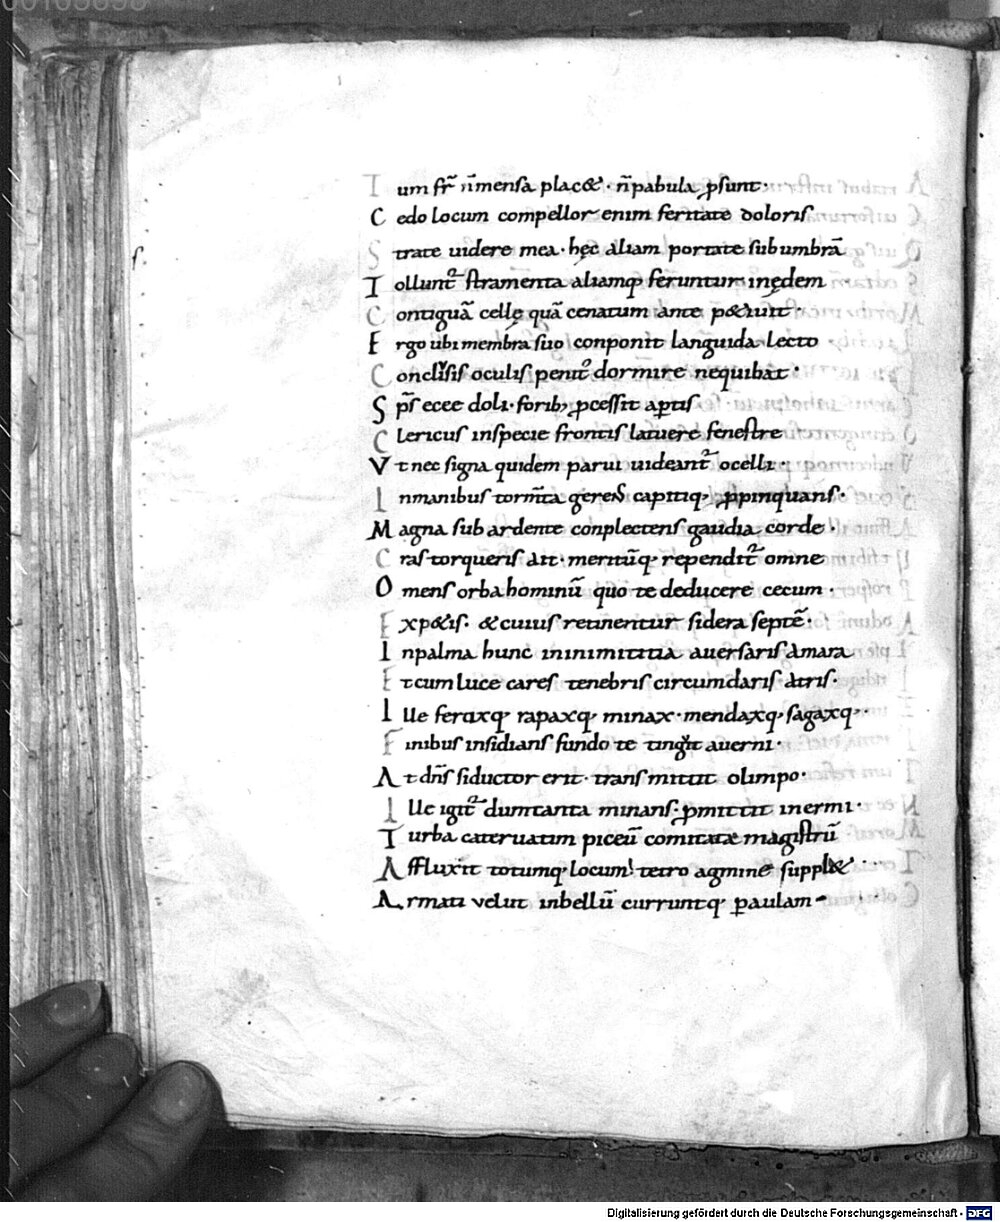 Tum fr̄ n̄mensa plac&· n̄ pabula ꝓsunt·
Cedo locum compellor enim feritate doloris
Strate uidere mea· hęc aliam portate sub umbrā
Tollunt᷑ stramenta aliamq; feruntur inędem
Contiguā cellę quā cenatum ante p&iuit·
Ergo ubi membra suo conponit languida lecto
Conclusis oculis penit᷒ dormire nequibat·
Sp̄s ecce doli· forib; ꝓcessit aꝑtis
Clericus inspecie frontis latuere fenestre
Vt nec signa quidem parui uideant᷑ ocelli·
Inmanibus torm̄ta gerens capitiq; ꝓpinquans·
Magna sub ardente conplectens gaudia corde·
Cras torqueris ait· meritūq; rependit᷑ omne
O mens orba hominū quo te deducere cecum·
Exp&is· &cuius retinentur sidera septē·
Inpalma hunc inimicitia auersaris amara
Et cum luce cares tenebris circumdaris atris·
Ille feraxq; rapaxq; minax· mendaxq; sagaxq;·
Finibus insidians fundo te tingit auerni·
At dn̄s siductor erit· transmittit olimpo·
Ille igit᷑ dumtanta minans· ꝓmittit inermi·
Turba cateruatim piceū comitata magistrū
Affluxit totumq; locum tetro agmine suppl&·
Armati velut inbellū curruntq; ꝑaulam
s.
Digitalisierung gefördert durch die Deutsche Forschungsgemeinschaft - DFG